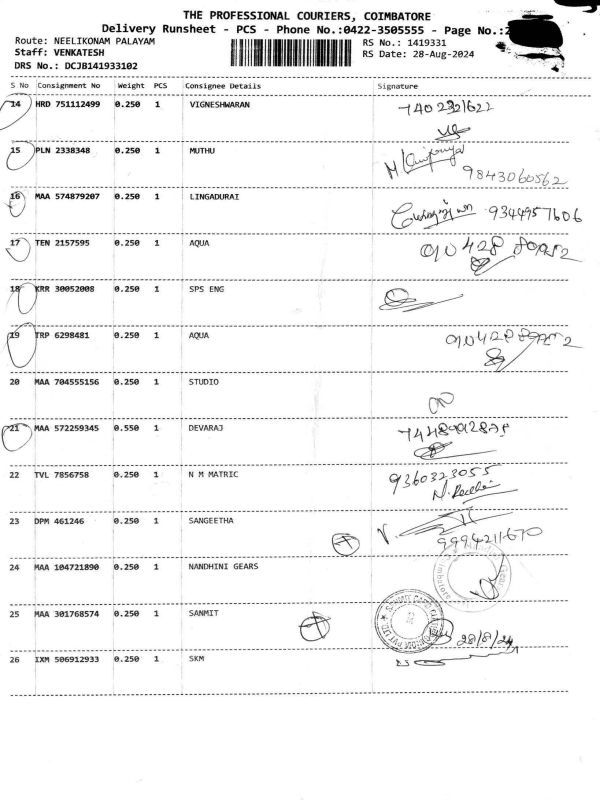 THE PROFESSIONAL COURIERS, COIMBATORE
Delivery Runsheet - PCS - Phone No.:0422-3505555 - Page No.:2
Route: NEELIKONAM PALAYAM
RS No.: 1419331
Staff: VENKATESH
RS Date: 28-Aug-2024
DRS No.: DCJB141933102
S No Consignment No Weight PCS Consignee Details Signature
14 HRD 751112499 0.250 1 VIGNESHWARAN
15 PLN 2338348 0.250 1 MUTHU
9843060562
16 MAA 574879207 0.250 1 LINGADURAI 9344957606
17 TEN 2157595 0.250 1 AQUA
18 KRR 30052008 0.250 1 SPS ENG
19 TRP 6298481 0.250 1 AQUA
20 MAA 704555156 0.250 1 STUDIO
21 MAA 572259345 0.550 1 DEVARAJ
22 TVL 7856758 0.250 1 N M MATRIC 9360323055
23 DPM 461246 0.250 1 SANGEETHA
9994211670
24 MAA 104721890 0.250 1 NANDHINI GEARS
25 MAA 301768574 0.250 1 SANMIT
28/8/24
26 IXM 506912933 0.250 1 SKM